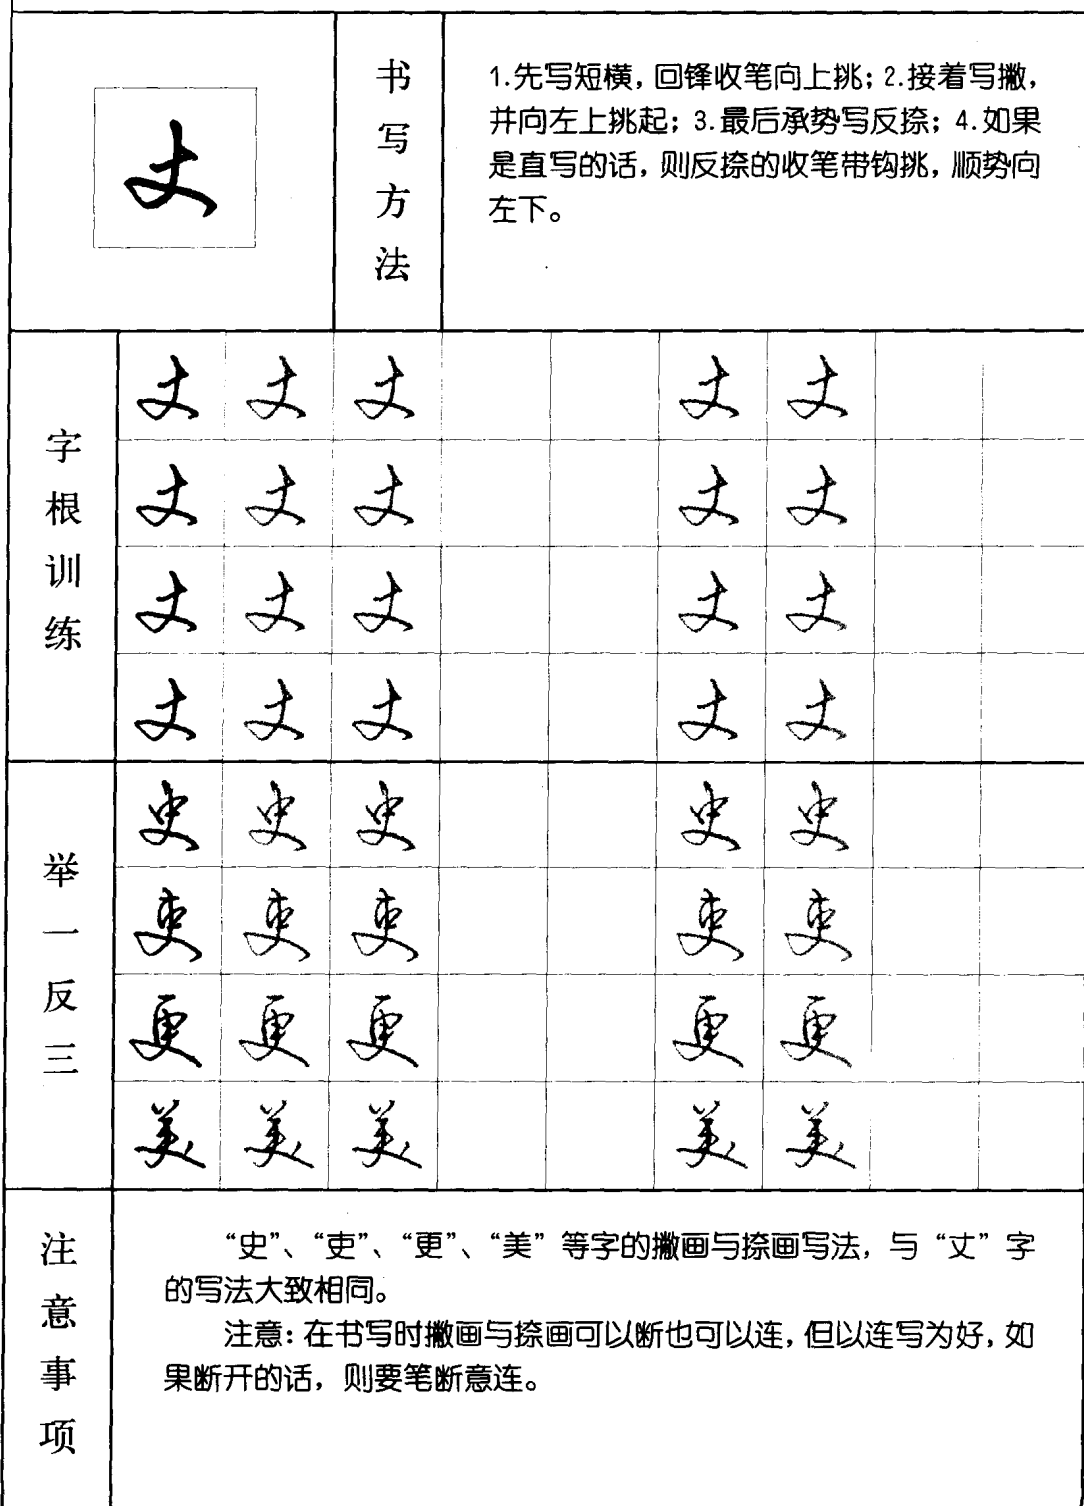 丈
书写方法
1.先写短横，回锋收笔向上挑；2.接着写撇，
并向左上挑起；3.最后承势写反捺；4.如果
是直写的话，则反捺的收笔带钩挑，顺势向
左下。
字根训练
丈 丈 丈 丈 丈
丈 丈 丈 丈 丈
丈 丈 丈 丈 丈
丈 丈 丈 丈 丈
举一反三
史 史 史 史 史
吏 吏 吏 吏 吏
更 更 更 更 更
美 美 美 美 美
注意事项
“史”、“吏”、“更”、“美”等字的撇画与捺画写法，与“丈”字
的写法大致相同。
注意：在书写时撇画与捺画可以断也可以连，但以连写为好，如
果断开的话，则要笔断意连。